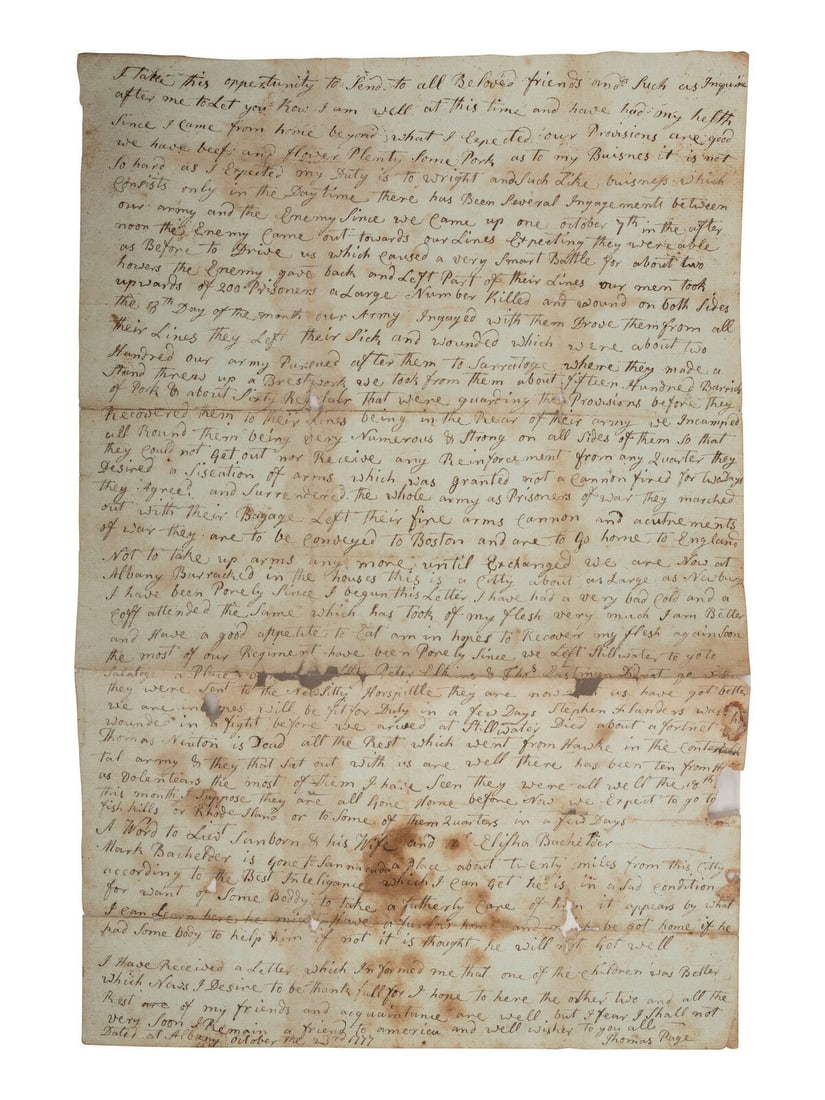 I Take this oppertunity to Send to all Beloved friends and Such as Inquire
after me to Let you Know I am well at this time and have had my helth
Since I came from home beyond what I Expected our Provisions are good
we have beef and flower Plenty Some Pork as to my Buisnes it is not
So hard as I Expected my Duty is to wright and Such Like buisness which
Consists only in the Daytime there has Been Several Ingagements between
our army and the Enemy Since we Came up one october 7th in the after
noon the Enemy Came out towards our Lines Expecting they were able
as Before to Drive us which caused a very Smart Battle for about two
howers the Enemy gave back and Left Part of their Lines our men took
upwards of 200 Prisoners a Large Number Killed and wound on both Sides
the 8th Day of the month our Army Ingaged with them Drove them from all
their Lines they Left their Sick and wounded which were about two
Hundred our army Pursued after them to Sarratoge where they made a
Stand threw up a Brestwork we took from them about fifteen Hundred Barriels
of Pork & about Sixty that were guarding the Provisions before they
Recovered them to their Lines being in the Rear of their army we Incamped
all Round them being very Numerous & Strong on all Sides of them So that
they could not Get out nor Receive any Reinforcement from any Quarter they
Desired a Siseation of arms which was granted not a Cannon fired for two Days
they Agreed and Surrendered the whole army as Prisoners of war they marched
out with their Bagage Left their fire arms Cannon and acutrements
of war they are to be Conveyed to Boston and are to Go home to England
Not to take up arms any more until Exchanged we are Now at
Albany Barracked in the houses this is a Citty about as Large as Newbury
I have been Porely Since I begun this Letter I have had a very bad Cold and a
Coff attended the Same which has took of my flesh very much I am Better
and Have a good appetite to Eat am in hopes to Recover my flesh again Soon
the most of our Regiment have been Porely Since we Left Stillwater to go to
Salatoge a Place Peter Elkins & Thos Eastman Did not go
they were Sent to the New Sitty Horspittle they are now us have got better
we are in opes will be fit for Duty in a few Days Stephen Flanders was
wounded in a fight before we arived at Stillwater Died about a fortnet
Thomas Niuton is Dead all the Rest which went from Hawke in the
tal army & they that Sat out with us are well there has been ten from
as Volentears the most of them I have Seen they were all well the 18th
this month I Suppose they are all Gone Home before Now we Expect to go to
fish hills or Rhode Island or to Some of them Quarters in a few Days
A Word to Liut Sanborn & his Wife and Elisha Bachelder
Mark Bachelder is gone to a Place about twenty miles from this Citty
according to the Best Inteligance which I can Get he is in a Sad condition
for want of Some Boddy to take a futherly Care of him it appears by what
I can Learn here he Have a furlow home and be got home if he
had Some body to help him if not it is thought he will not Get well
I Have Received a Letter which Informed me that one of the children was Better
which News I Desire to be thankfull for I hope to here the other two and all the
Rest are of my friends and acquaintance are well but I fear I Shall not
very Soon I Remain a friend to america and well wisher to you all
Dated at Albany october the 23rd 1777 Thomas Page